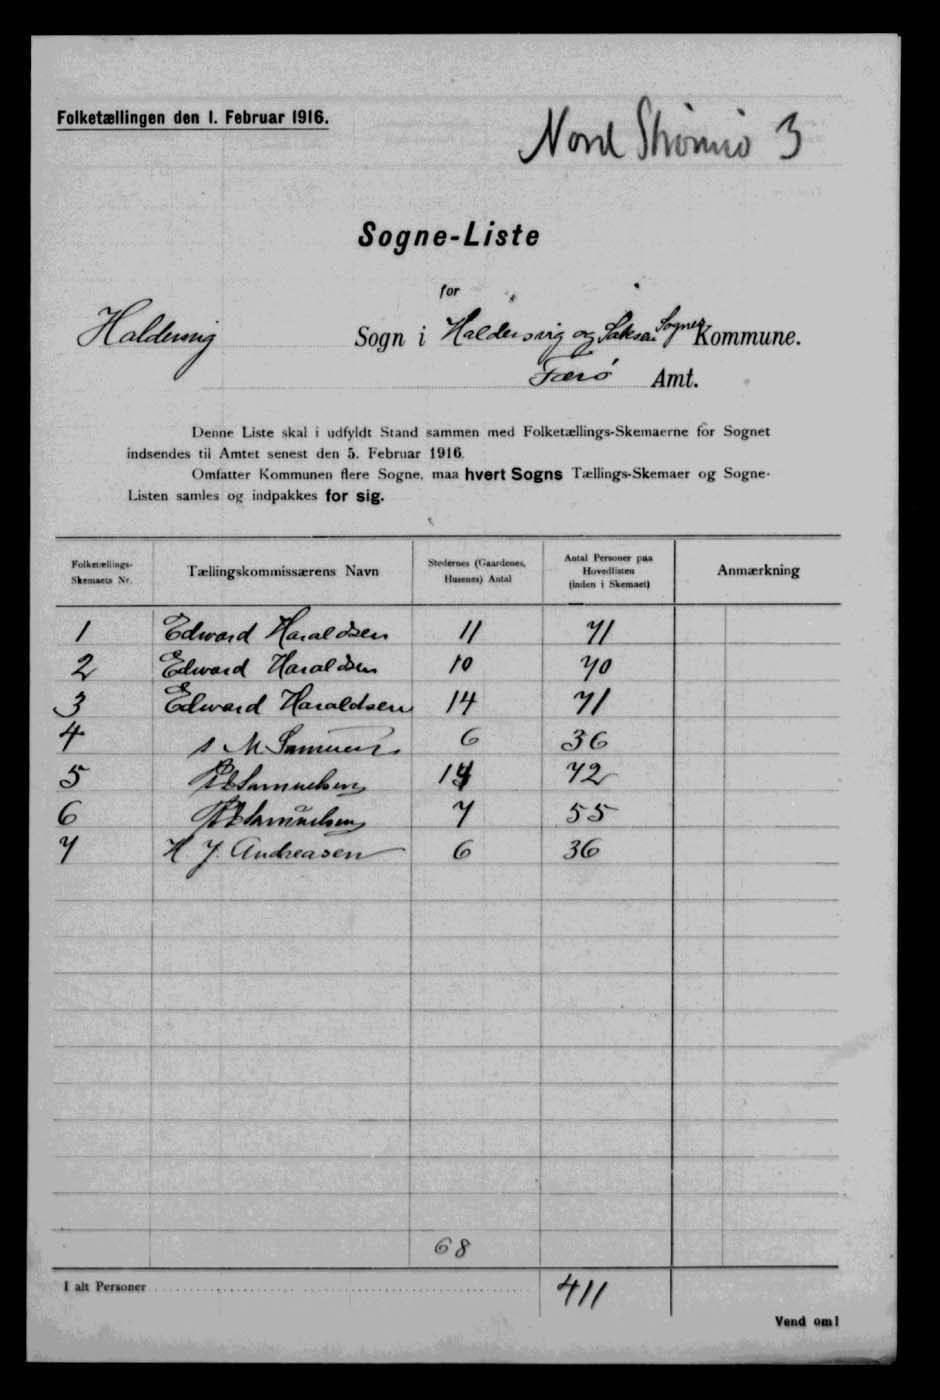 Folketællingen den 1. Februar 1916.
Nord Strømø 3
Sogne-Liste
for
Haldersvig Sogn i Haldersvig og Saksen Sognes Kommune.
Færø Amt.
Denne Liste skal i udfyldt Stand sammen med Folketællings-Skemaerne for Sognet
indsendes til Amtet senest den 5. Februar 1916.
Omfatter Kommunen flere Sogne, maa hvert Sogns Tællings-Skemaer og Sogne-
Listen samles og indpakkes for sig.
Folketællings-
Skemaets Nr.
Tællingskommissærens Navn
Stedernes (Gaardenes,
Husenes) Antal
Antal Personer paa
Hovedlisten
(inden i Skemaet)
Anmærkning
1 Edward Haraldsen 11 71
2 Edward Haraldsen 10 70
3 Edward Haraldsen 14 71
4 6 36
5 Samuelsen 14 72
6 Samuelsen 7 55
7 H. J. Andreasen 6 36
68
I alt Personer 411
Vend om!